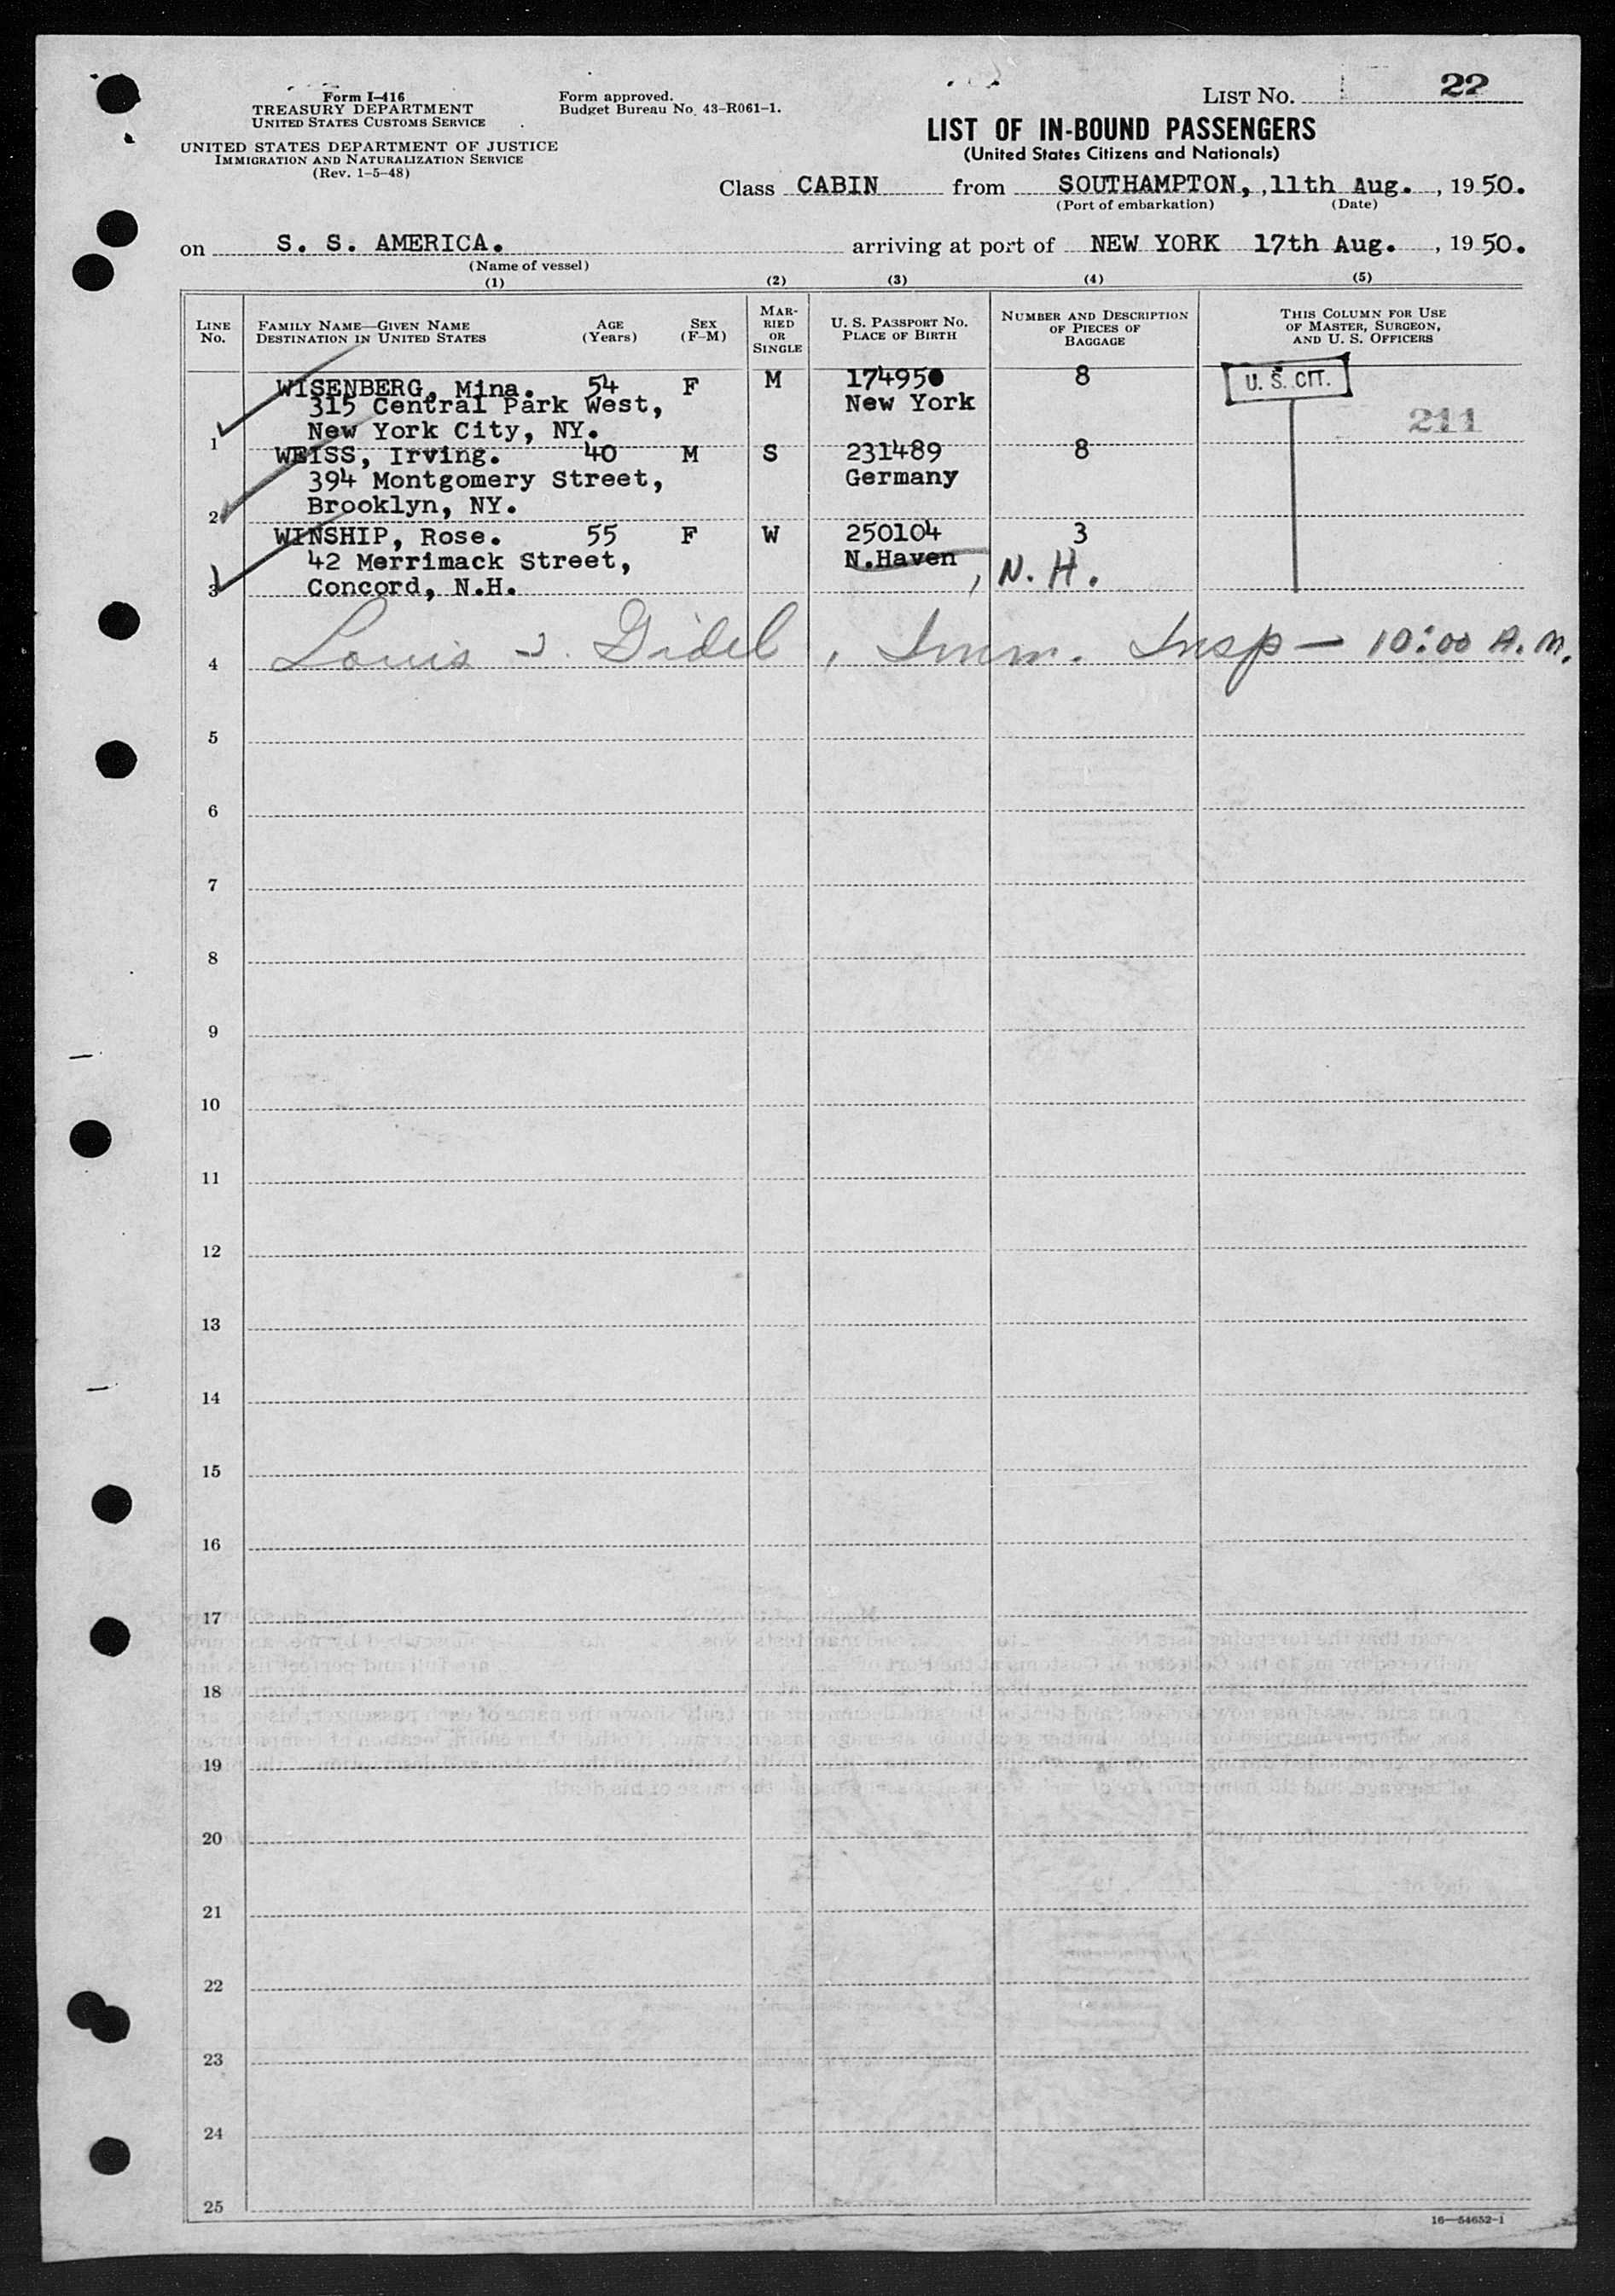 Form I-416
TREASURY DEPARTMENT
UNITED STATES CUSTOMS SERVICE
UNITED STATES DEPARTMENT OF JUSTICE
IMMIGRATION AND NATURALIZATION SERVICE
(Rev. 1-5-48)
Form approved.
Budget Bureau No. 43-R061-1.
LIST No. 22
LIST OF IN-BOUND PASSENGERS
(United States Citizens and Nationals)
Class CABIN from SOUTHAMPTON, , 11th Aug. , 19 50.
(Port of embarkation) (Date)
on S. S. AMERICA. arriving at port of NEW YORK 17th Aug. , 19 50.
(Name of vessel)
(1) (2) (3) (4) (5)
LINE No. FAMILY NAME—GIVEN NAME DESTINATION IN UNITED STATES AGE (Years) SEX (F-M) MARRIED OR SINGLE U. S. PASSPORT No. PLACE OF BIRTH NUMBER AND DESCRIPTION OF PIECES OF BAGGAGE THIS COLUMN FOR USE OF MASTER, SURGEON, AND U. S. OFFICERS
WISENBERG, Mina. 54 F M 174950 8 U. S. CIT.
315 Central Park West, New York 211
1 New York City, NY.
WEISS, Irving. 40 M S 231489 8
394 Montgomery Street, Germany
2 Brooklyn, NY.
WINSHIP, Rose. 55 F W 250104 3
42 Merrimack Street, N.Haven , N. H.
3 Concord, N.H.
4 Louis J. Gidel, Imm. Insp — 10:00 A.M.
5
6
7
8
9
10
11
12
13
14
15
16
17
18
19
20
21
22
23
24
25
16—54652-1